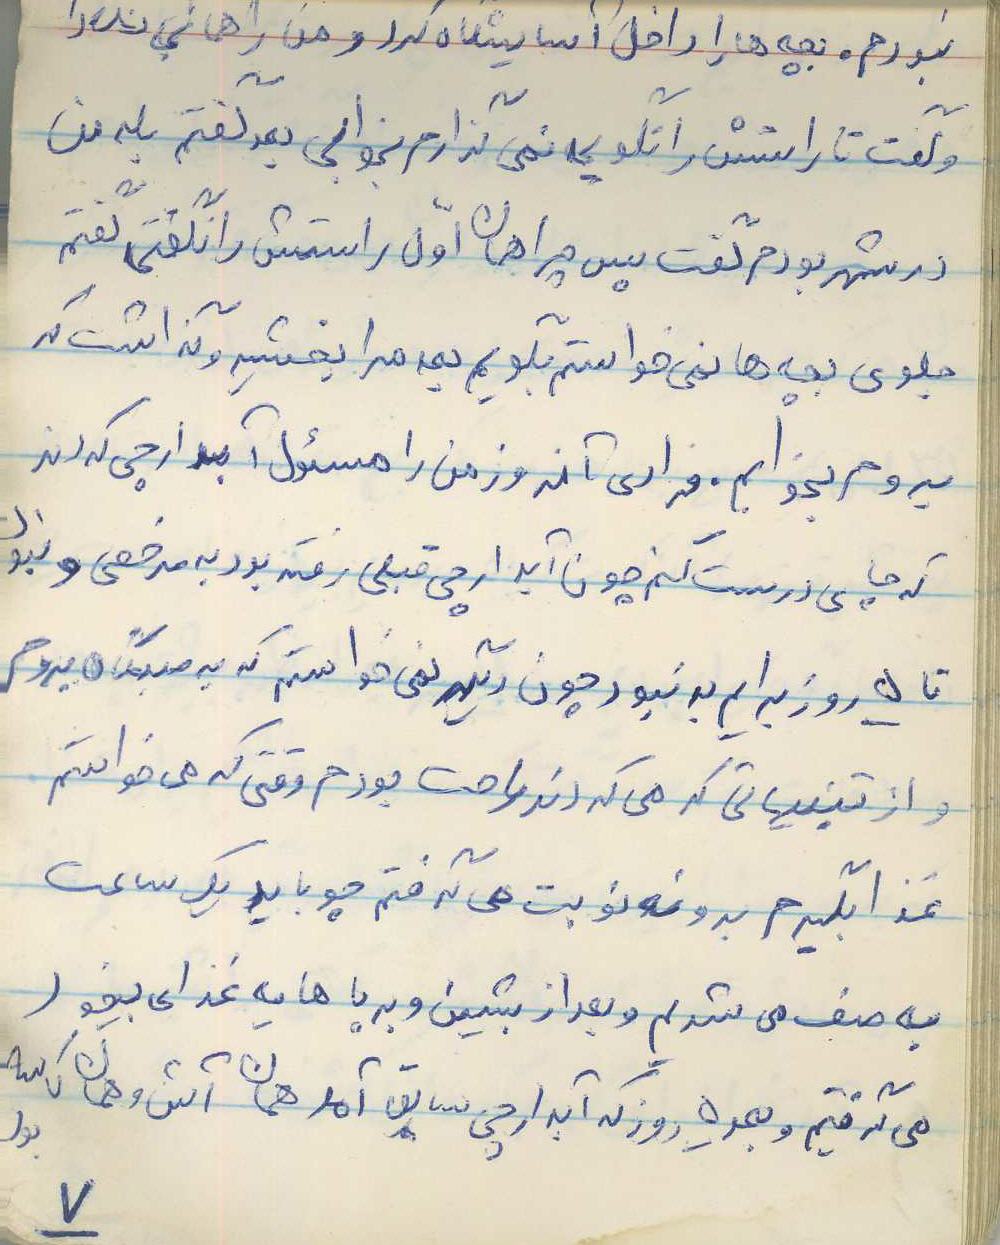 نبودم. بچه ها را داخل آسایشگاه کرد و من را
و گفت تا راستش را نگویی نمی گذارم بخوابی بعد گفتم بله من
در شهر بودم گفت پس چرا همان اوّل راستش را نگفتی گفتم
جلوی بچه ها نمی خواستم بگویم بعد مرا بخشید و گذاشت که
بروم بخوابم. فردای آن روز من را مسئول آبدارچی کردند
که چای درست کنم چون آبدارچی قبلی رفته بود به مرخصی و
تا ۵ روز برایم بد نبود چون دیگر نمی خواستم که به صبگاه بروم
و از تنبیهاتی که می کردند راحت بودم وقتی که می خواستم
غذا بگیرم بدون نوبت می گرفتم چو باید یک ساعت
به صف می شدیم و بعد از بشین و بر پا ها یه غذای بخور
می گرفتیم و بعد ۵ روز که آبدارچی سابق آمد همان آش و همان کاسه
بود
۷